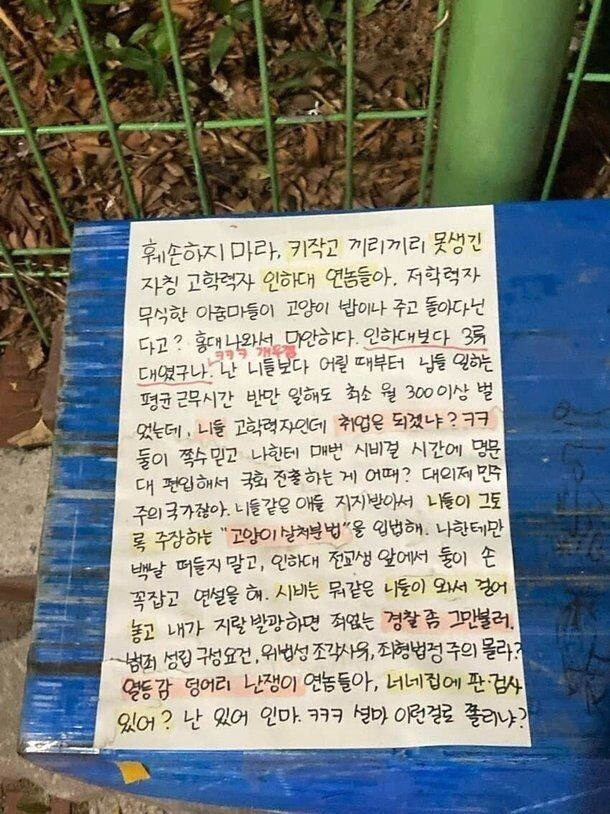 훼손하지 마라, 키작고 끼리끼리 못생긴
자칭 고학력자 인하대 연놈들아, 저학력자
무식한 아줌마들이 고양이 밥이나 주고 돌아다닌
다고? 홍대 나와서 미안하다. 인하대보다 3류
대였구나. ㅋㅋㅋ 개웃겨 난 니들보다 어릴 때부터 님들 일하는
평균 근무시간 반만 일해도 최소 월 300이상 벌
었는데, 니들 고학력자인데 취업은 되겠냐? ㅋㅋ
둘이 쪽수 믿고 나한테 매번 시비걸 시간에 명문
대 편입해서 국회 진출하는 게 어때? 대의제 민주
주의 국가잖아. 니들같은 애들 지지받아서 니들이 그토
록 주장하는 "고양이 살처분법"을 입법해. 나한테만
백날 떠들지 말고, 인하대 전교생 앞에서 둘이 손
꼭잡고 연설을 해. 시비는 뭐같은 니들이 와서 걸어
놓고 내가 지랄발광하면 죄없는 경찰 좀 그만불러.
범죄 성립 구성요건, 위법성 조각사유, 죄형법정주의 몰라?
열등감 덩어리 난쟁이 연놈들아, 너네집에 판·검사
있어? 난 있어 인마. ㅋㅋㅋ 설마 이런걸로 쫄리냐?